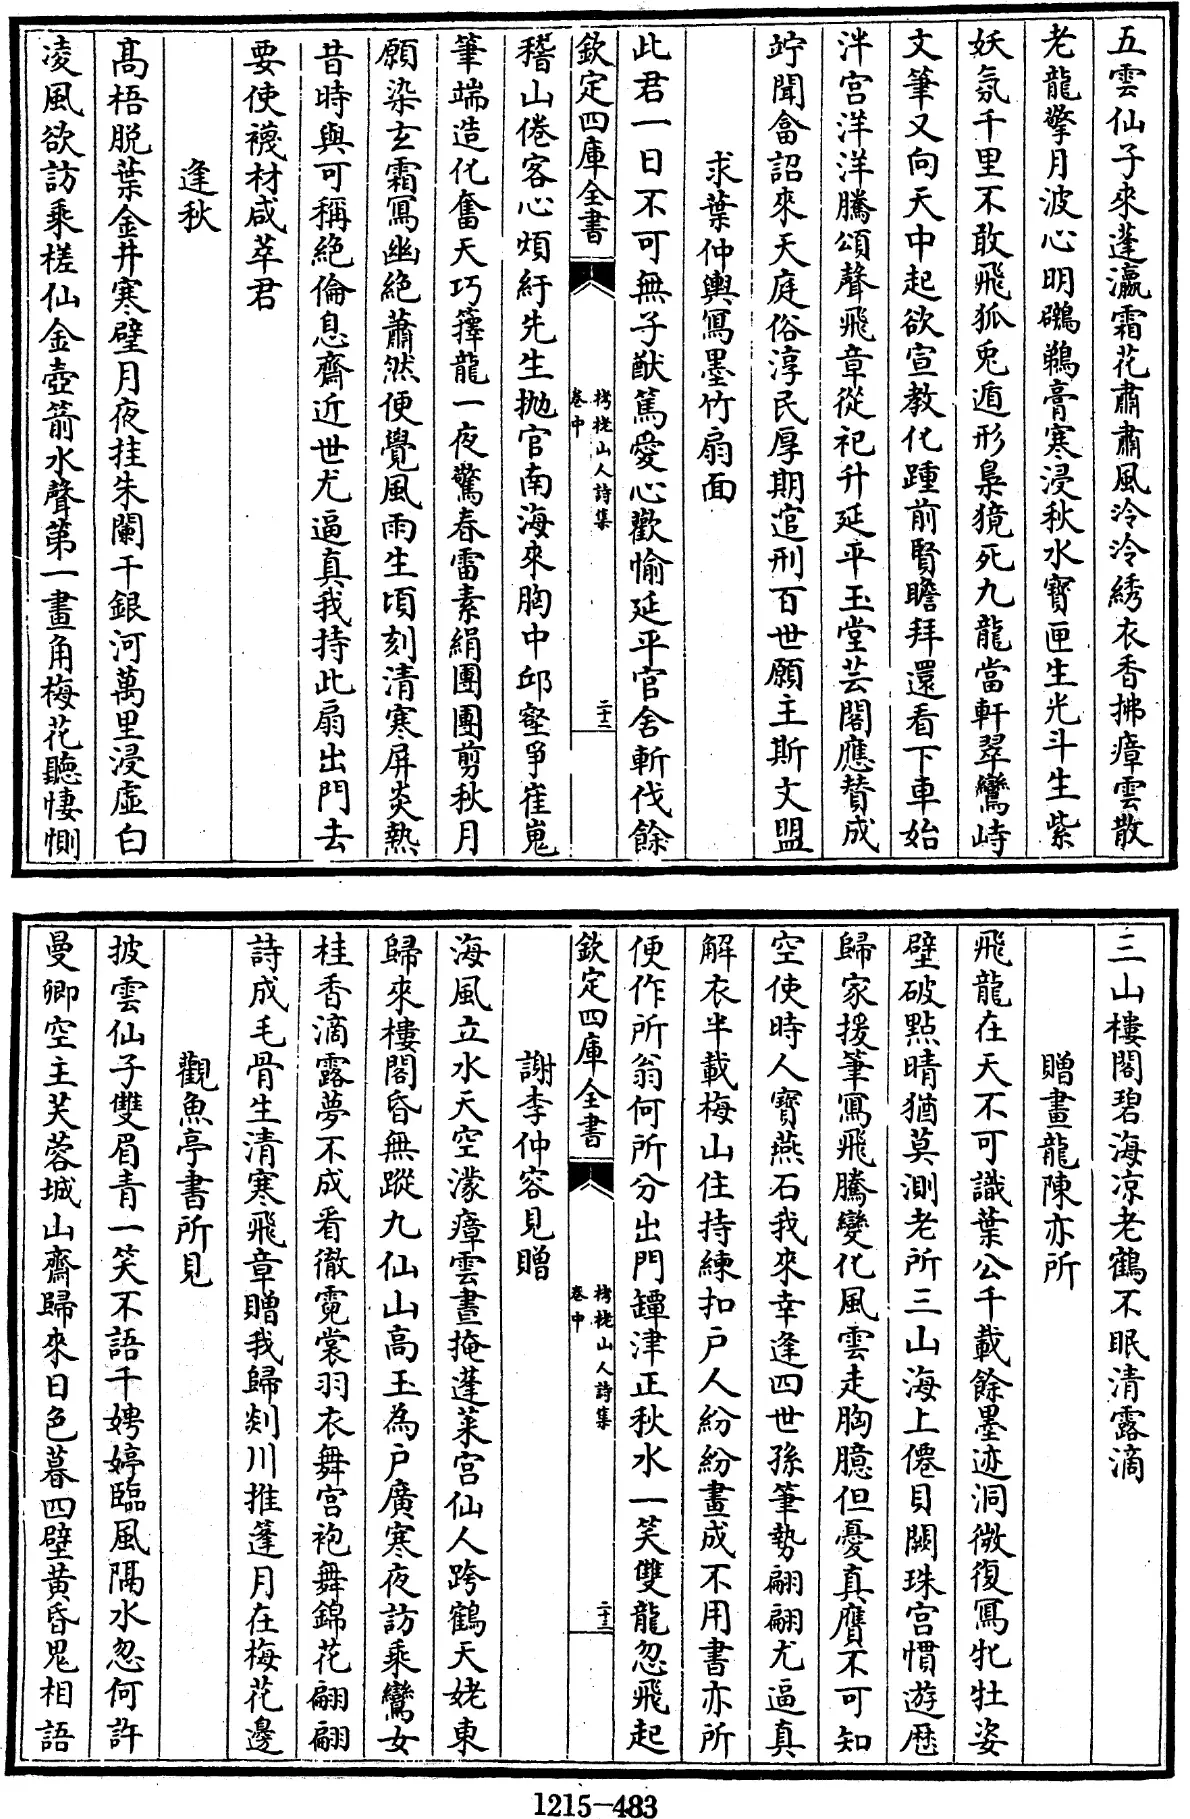 五雲仙子來蓬瀛霜花肅肅風泠泠綉衣香拂瘴雲散
老龍擎月波心明鷿鵜膏寒浸秋水寳匣生光斗生紫
妖氛千里不敢飛狐兎遁形梟獍死九龍當軒翠鸞峙
文筆又向天中起欲宣教化踵前賢瞻拜還看下車始
泮宫洋洋騰頌聲飛章從祀升延平玉堂芸閣應贊成
竚聞畣詔來天庭俗淳民厚期逭刑百世願主斯文盟
求葉仲輿冩墨竹扇面
此君一日不可無子猷篤愛心歡愉延平官舍斬伐餘
欽定四庫全書
栲栳山人詩集
卷中
二十二
稽山倦客心煩紆先生抛官南海來胸中邱壑爭崔嵬
筆端造化奮天巧籜龍一夜驚春雷素絹團團剪秋月
願染玄霜冩幽絶蕭然便覺風雨生頃刻清寒屏炎熱
昔時與可稱絶倫息齋近世尤逼真我持此扇出門去
要使襪材咸萃君
逢秋
髙梧脱葉金井寒璧月夜挂朱闌干銀河萬里浸虛白
凌風欲訪乘槎仙金壺箭水聲第一畫角梅花聽悽惻
三山樓閣碧海凉老鶴不眠清露滴
贈畫龍陳亦所
飛龍在天不可識葉公千載餘墨迹洞微復冩牝牡姿
壁破點晴猶莫測老所三山海上僊貝闕珠宫慣遊歴
歸家援筆冩飛騰變化風雲走胸臆但憂真贋不可知
空使時人寳燕石我來幸逢四世孫筆勢翩翩尤逼真
解衣半載梅山住持練扣户人紛紛畫成不用書亦所
便作所翁何所分出門鐔津正秋水一笑雙龍忽飛起
欽定四庫全書
栲栳山人詩集
卷中
二十三
謝李仲容見贈
海風立水天空濛瘴雲晝掩蓬萊宫仙人跨鶴天姥東
歸來樓閣昏無蹤九仙山高玉為户廣寒夜訪乘鸞女
桂香滴露夢不成看徹霓裳羽衣舞宫袍舞錦花翩翩
詩成毛骨生清寒飛章贈我歸剡川推蓬月在梅花邊
觀魚亭書所見
披雲仙子雙眉青一笑不語千娉婷臨風隔水忽何許
曼卿空主芙蓉城山齋歸來日色暮四壁黄昏鬼相語
1215-483